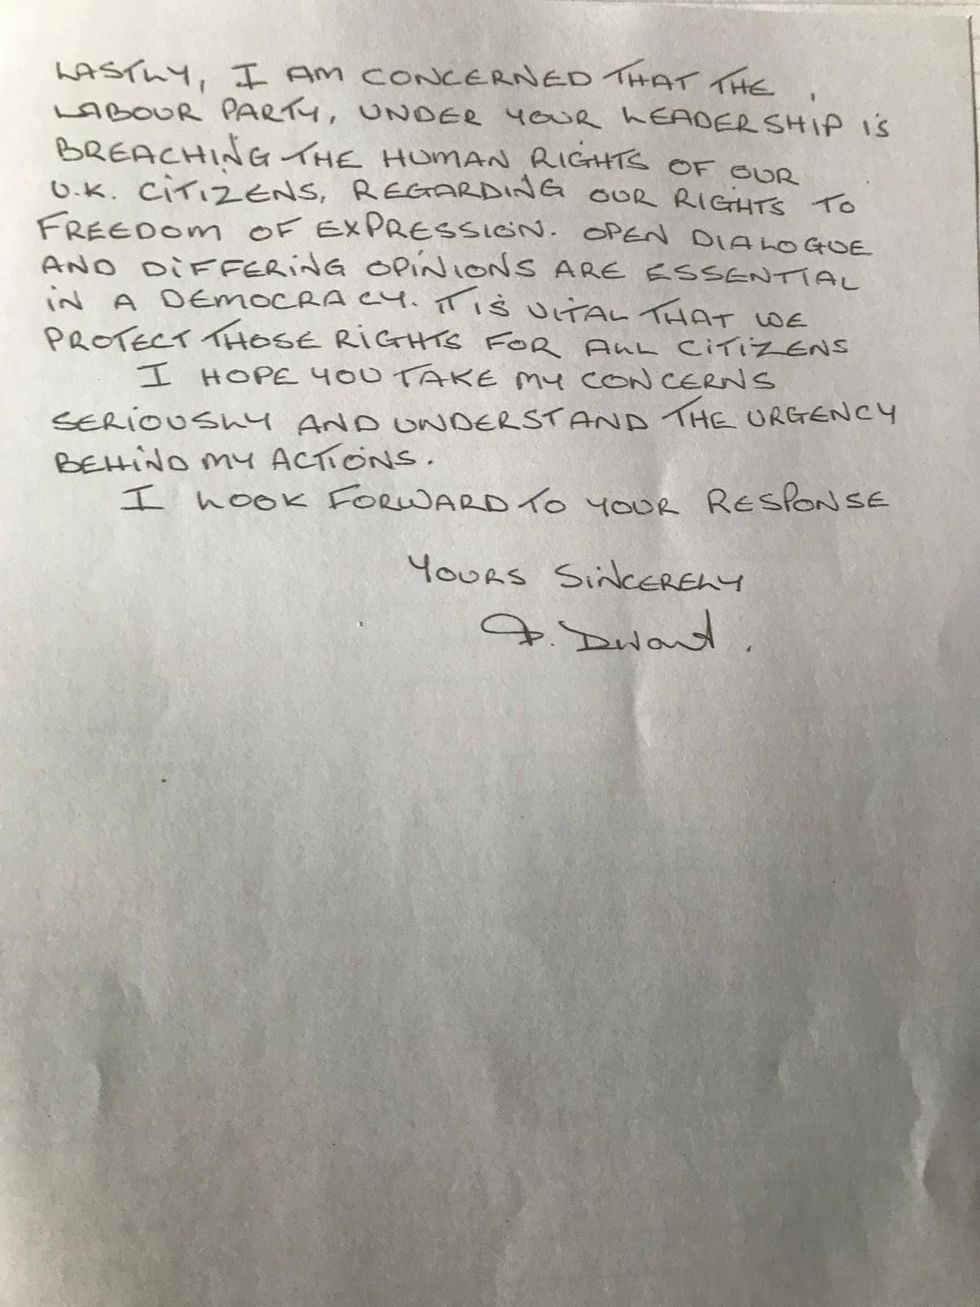 LASTLY, I AM CONCERNED THAT THE
LABOUR PARTY, UNDER YOUR LEADERSHIP IS
BREACHING THE HUMAN RIGHTS OF OUR
U.K. CITIZENS, REGARDING OUR RIGHTS TO
FREEDOM OF EXPRESSION. OPEN DIALOGUE
AND DIFFERING OPINIONS ARE ESSENTIAL
IN A DEMOCRACY. IT IS VITAL THAT WE
PROTECT THOSE RIGHTS FOR ALL CITIZENS
I HOPE YOU TAKE MY CONCERNS
SERIOUSLY AND UNDERSTAND THE URGENCY
BEHIND MY ACTIONS.
I LOOK FORWARD TO YOUR RESPONSE
YOURS SINCERELY